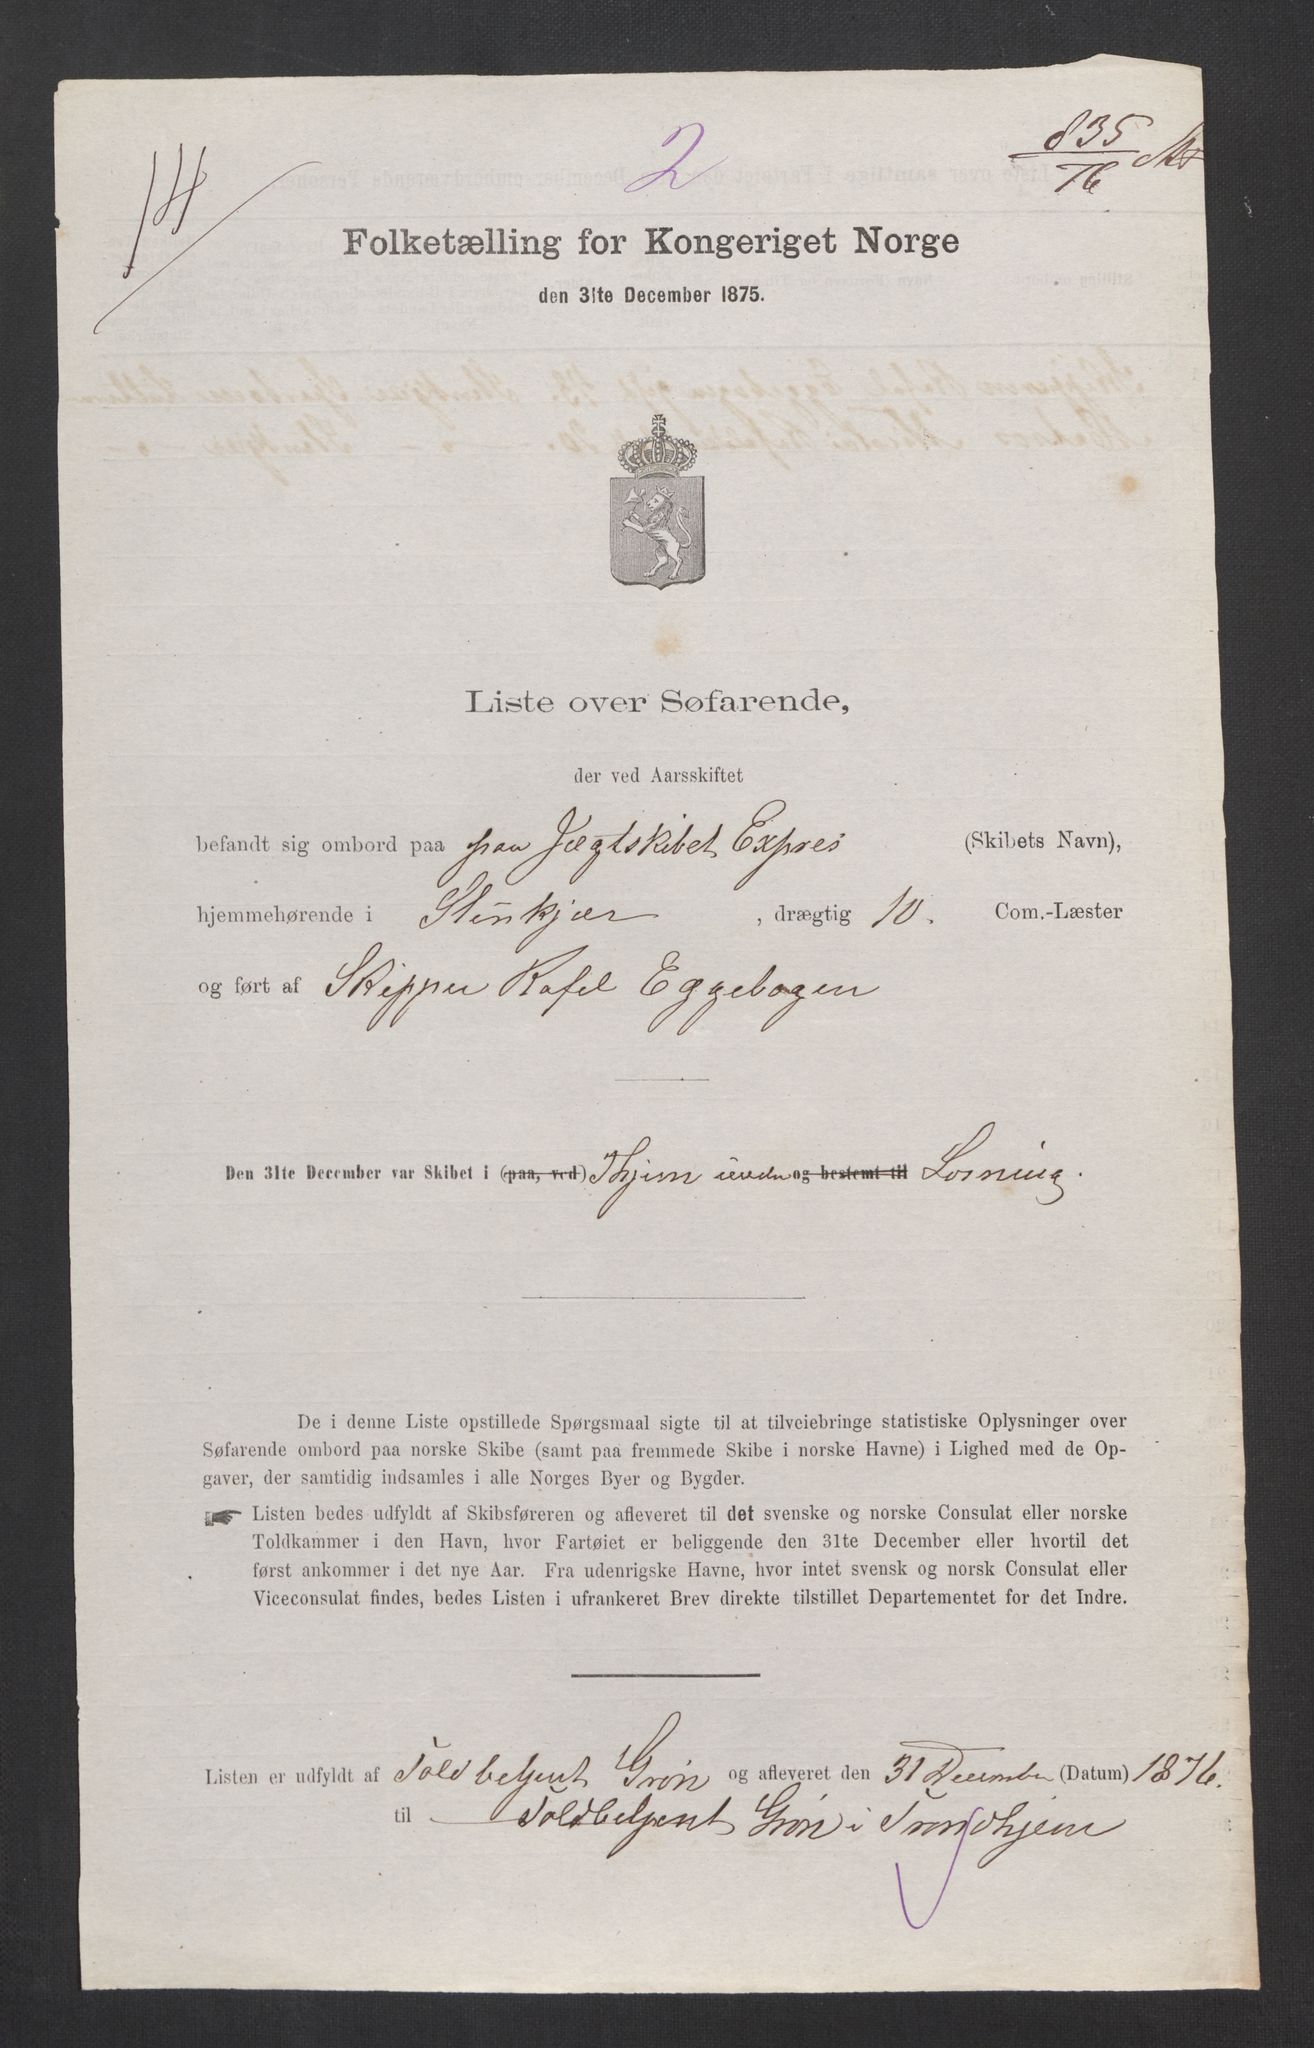 14
2
835
76
Folketælling for Kongeriget Norge
den 31te December 1875.
Liste over Søfarende,
der ved Aarsskiftet
befandt sig ombord paa paa Jægtskibet Expres (Skibets Navn),
hjemmehørende i Stenkjær, drægtig 10. Com.-Læster
og ført af Skipper Rafel Eggebogen
Den 31te December var Skibet i (paa, ved) Thjem under og bestemt til Losning.
De i denne Liste opstillede Spørgsmaal sigte til at tilveiebringe statistiske Oplysninger over
Søfarende ombord paa norske Skibe (samt paa fremmede Skibe i norske Havne) i Lighed med de Op-
gaver, der samtidig indsamles i alle Norges Byer og Bygder.
Listen bedes udfyldt af Skibsføreren og afleveret til det svenske og norske Consulat eller norske
Toldkammer i den Havn, hvor Fartøiet er beliggende den 31te December eller hvortil det
først ankommer i det nye Aar. Fra udenrigske Havne, hvor intet svensk og norsk Consulat eller
Viceconsulat findes, bedes Listen i ufrankeret Brev direkte tilstillet Departementet for det Indre.
Listen er udfyldt af Toldbetjent Grøn og afleveret den 31 December (Datum) 1876.
til Toldbetjent Grøn i Trondhjem